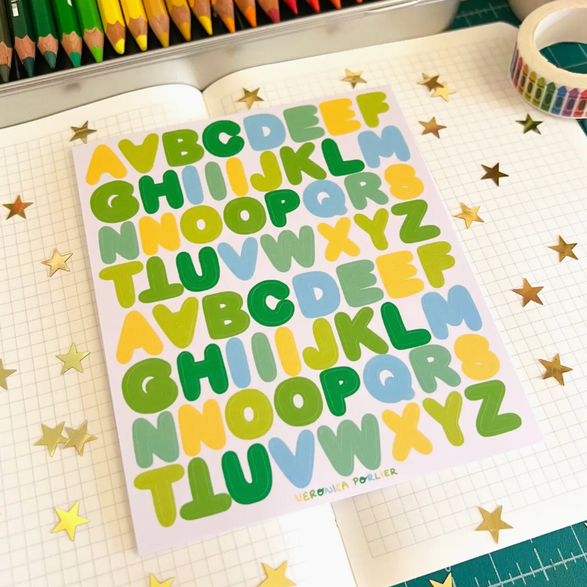 AABCDEEF
GHIIIJKLM
NNOOPQRS
TTUVWXYZ
AABCDEEF
GHIIIJKLM
NNOOPQRS
TTUVWXYZ
VERONICA PORLIER